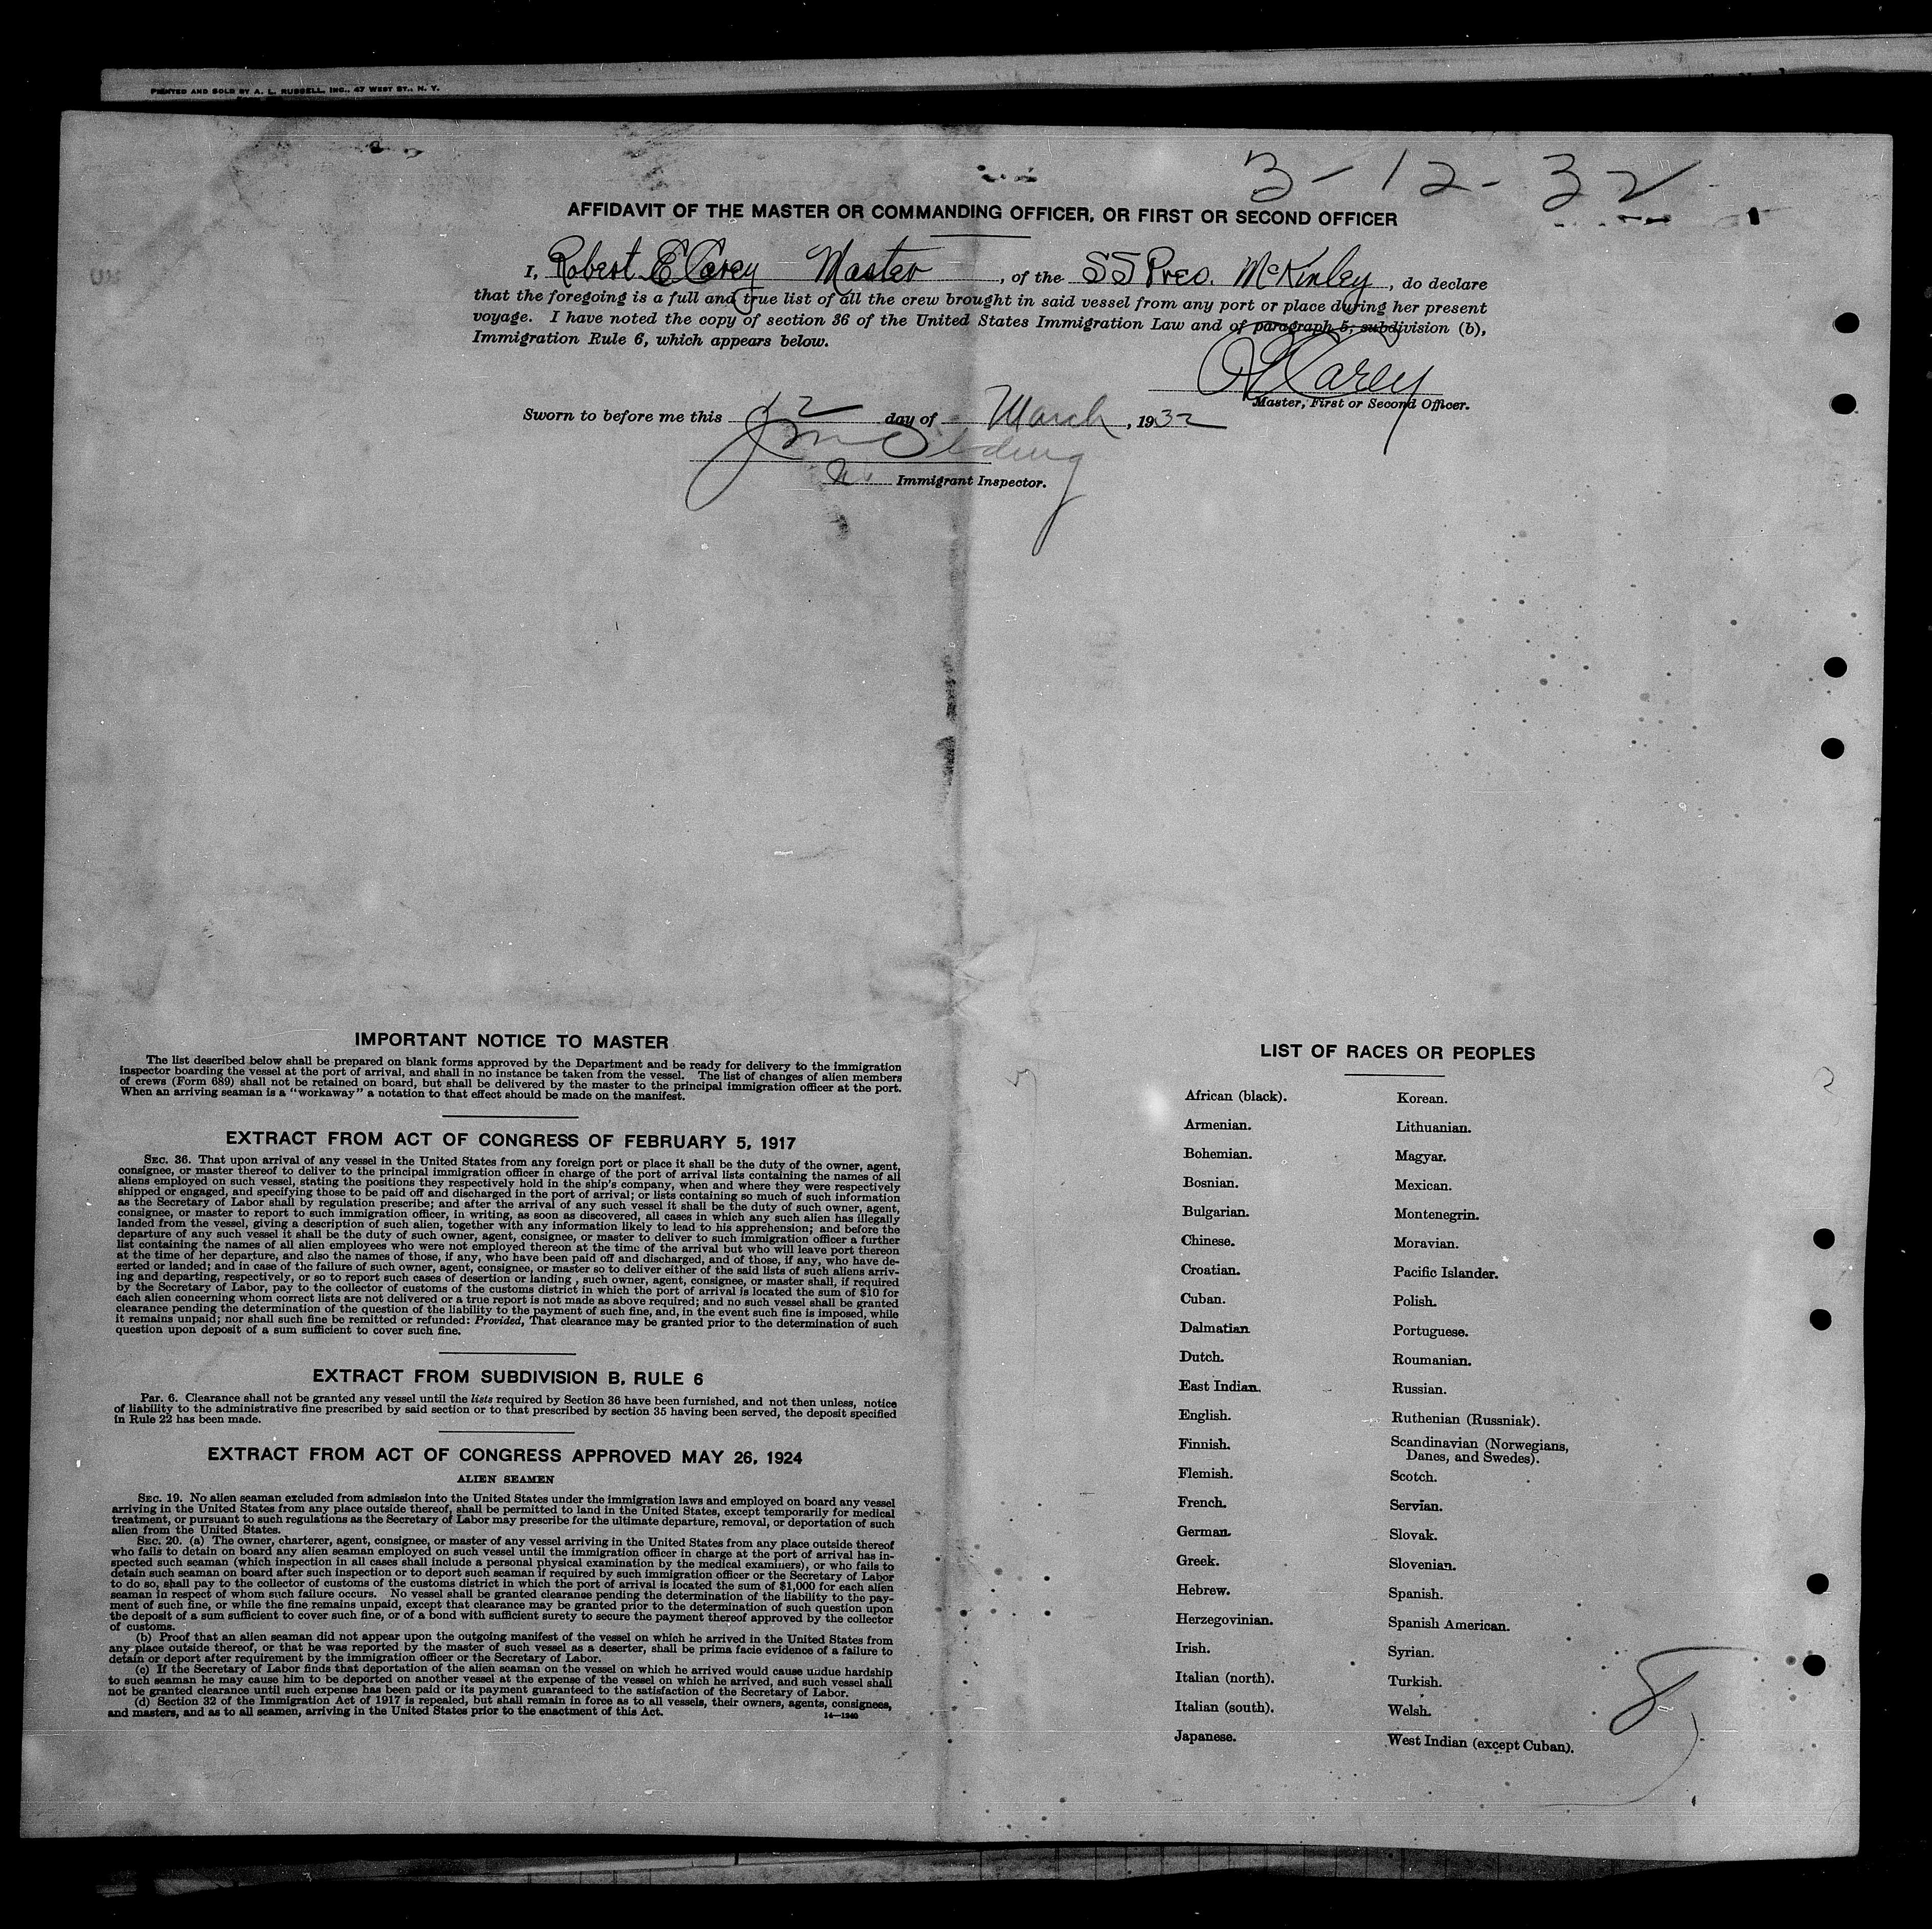 PRINTED AND SOLD BY A. L. RUSSELL, INC., 47 WEST ST., N. Y.
3-12-32
AFFIDAVIT OF THE MASTER OR COMMANDING OFFICER, OR FIRST OR SECOND OFFICER
I, Robert E Carey Master, of the SS Pres. McKinley, do declare
that the foregoing is a full and true list of all the crew brought in said vessel from any port or place during her present
voyage. I have noted the copy of section 36 of the United States Immigration Law and of paragraph 5, subdivision (b),
Immigration Rule 6, which appears below.
R E Carey
Master, First or Second Officer.
Sworn to before me this 12 day of March, 1932
Immigrant Inspector.
IMPORTANT NOTICE TO MASTER
The list described below shall be prepared on blank forms approved by the Department and be ready for delivery to the immigration
inspector boarding the vessel at the port of arrival, and shall in no instance be taken from the vessel. The list of changes of alien members
of crews (Form 689) shall not be retained on board, but shall be delivered by the master to the principal immigration officer at the port.
When an arriving seaman is a "workaway" a notation to that effect should be made on the manifest.
EXTRACT FROM ACT OF CONGRESS OF FEBRUARY 5, 1917
SEC. 36. That upon arrival of any vessel in the United States from any foreign port or place it shall be the duty of the owner, agent,
consignee, or master thereof to deliver to the principal immigration officer in charge of the port of arrival lists containing the names of all
aliens employed on such vessel, stating the positions they respectively hold in the ship's company, when and where they were respectively
shipped or engaged, and specifying those to be paid off and discharged in the port of arrival; or lists containing so much of such information
as the Secretary of Labor shall by regulation prescribe; and after the arrival of any such vessel it shall be the duty of such owner, agent,
consignee, or master to report to such immigration officer, in writing, as soon as discovered, all cases in which any such alien has illegally
landed from the vessel, giving a description of such alien, together with any information likely to lead to his apprehension; and before the
departure of any such vessel it shall be the duty of such owner, agent, consignee, or master to deliver to such immigration officer a further
list containing the names of all alien employees who were not employed thereon at the time of the arrival but who will leave port thereon
at the time of her departure, and also the names of those, if any, who have been paid off and discharged, and of those, if any, who have de-
serted or landed; and in case of the failure of such owner, agent, consignee, or master so to deliver either of the said lists of such aliens arriv-
ing and departing, respectively, or so to report such cases of desertion or landing , such owner, agent, consignee, or master shall, if required
by the Secretary of Labor, pay to the collector of customs of the customs district in which the port of arrival is located the sum of $10 for
each alien concerning whom correct lists are not delivered or a true report is not made as above required; and no such vessel shall be granted
clearance pending the determination of the question of the liability to the payment of such fine, and, in the event such fine is imposed, while
it remains unpaid; nor shall such fine be remitted or refunded: Provided, That clearance may be granted prior to the determination of such
question upon deposit of a sum sufficient to cover such fine.
EXTRACT FROM SUBDIVISION B, RULE 6
Par. 6. Clearance shall not be granted any vessel until the lists required by Section 36 have been furnished, and not then unless, notice
of liability to the administrative fine prescribed by said section or to that prescribed by section 35 having been served, the deposit specified
in Rule 22 has been made.
EXTRACT FROM ACT OF CONGRESS APPROVED MAY 26, 1924
ALIEN SEAMEN
SEC. 19. No alien seaman excluded from admission into the United States under the immigration laws and employed on board any vessel
arriving in the United States from any place outside thereof, shall be permitted to land in the United States, except temporarily for medical
treatment, or pursuant to such regulations as the Secretary of Labor may prescribe for the ultimate departure, removal, or deportation of such
alien from the United States.
SEC. 20. (a) The owner, charterer, agent, consignee, or master of any vessel arriving in the United States from any place outside thereof
who fails to detain on board any alien seaman employed on such vessel until the immigration officer in charge at the port of arrival has in-
spected such seaman (which inspection in all cases shall include a personal physical examination by the medical examiners), or who fails to
detain such seaman on board after such inspection or to deport such seaman if required by such immigration officer or the Secretary of Labor
to do so, shall pay to the collector of customs of the customs district in which the port of arrival is located the sum of $1,000 for each alien
seaman in respect of whom such failure occurs. No vessel shall be granted clearance pending the determination of the liability to the pay-
ment of such fine, or while the fine remains unpaid, except that clearance may be granted prior to the determination of such question upon
the deposit of a sum sufficient to cover such fine, or of a bond with sufficient surety to secure the payment thereof approved by the collector
of customs.
(b) Proof that an alien seaman did not appear upon the outgoing manifest of the vessel on which he arrived in the United States from
any place outside thereof, or that he was reported by the master of such vessel as a deserter, shall be prima facie evidence of a failure to
detain or deport after requirement by the immigration officer or the Secretary of Labor.
(c) If the Secretary of Labor finds that deportation of the alien seaman on the vessel on which he arrived would cause undue hardship
to such seaman he may cause him to be deported on another vessel at the expense of the vessel on which he arrived, and such vessel shall
not be granted clearance until such expense has been paid or its payment guaranteed to the satisfaction of the Secretary of Labor.
(d) Section 32 of the Immigration Act of 1917 is repealed, but shall remain in force as to all vessels, their owners, agents, consignees,
and masters, and as to all seamen, arriving in the United States prior to the enactment of this Act.
14—1240
LIST OF RACES OR PEOPLES
African (black).
Armenian.
Bohemian.
Bosnian.
Bulgarian.
Chinese.
Croatian.
Cuban.
Dalmatian
Dutch.
East Indian.
English.
Finnish.
Flemish.
French.
German.
Greek.
Hebrew.
Herzegovinian.
Irish.
Italian (north).
Italian (south).
Japanese.
Korean.
Lithuanian.
Magyar.
Mexican.
Montenegrin.
Moravian.
Pacific Islander.
Polish.
Portuguese.
Roumanian.
Russian.
Ruthenian (Russniak).
Scandinavian (Norwegians,
Danes, and Swedes).
Scotch.
Servian.
Slovak.
Slovenian.
Spanish.
Spanish American.
Syrian.
Turkish.
Welsh.
West Indian (except Cuban).
8